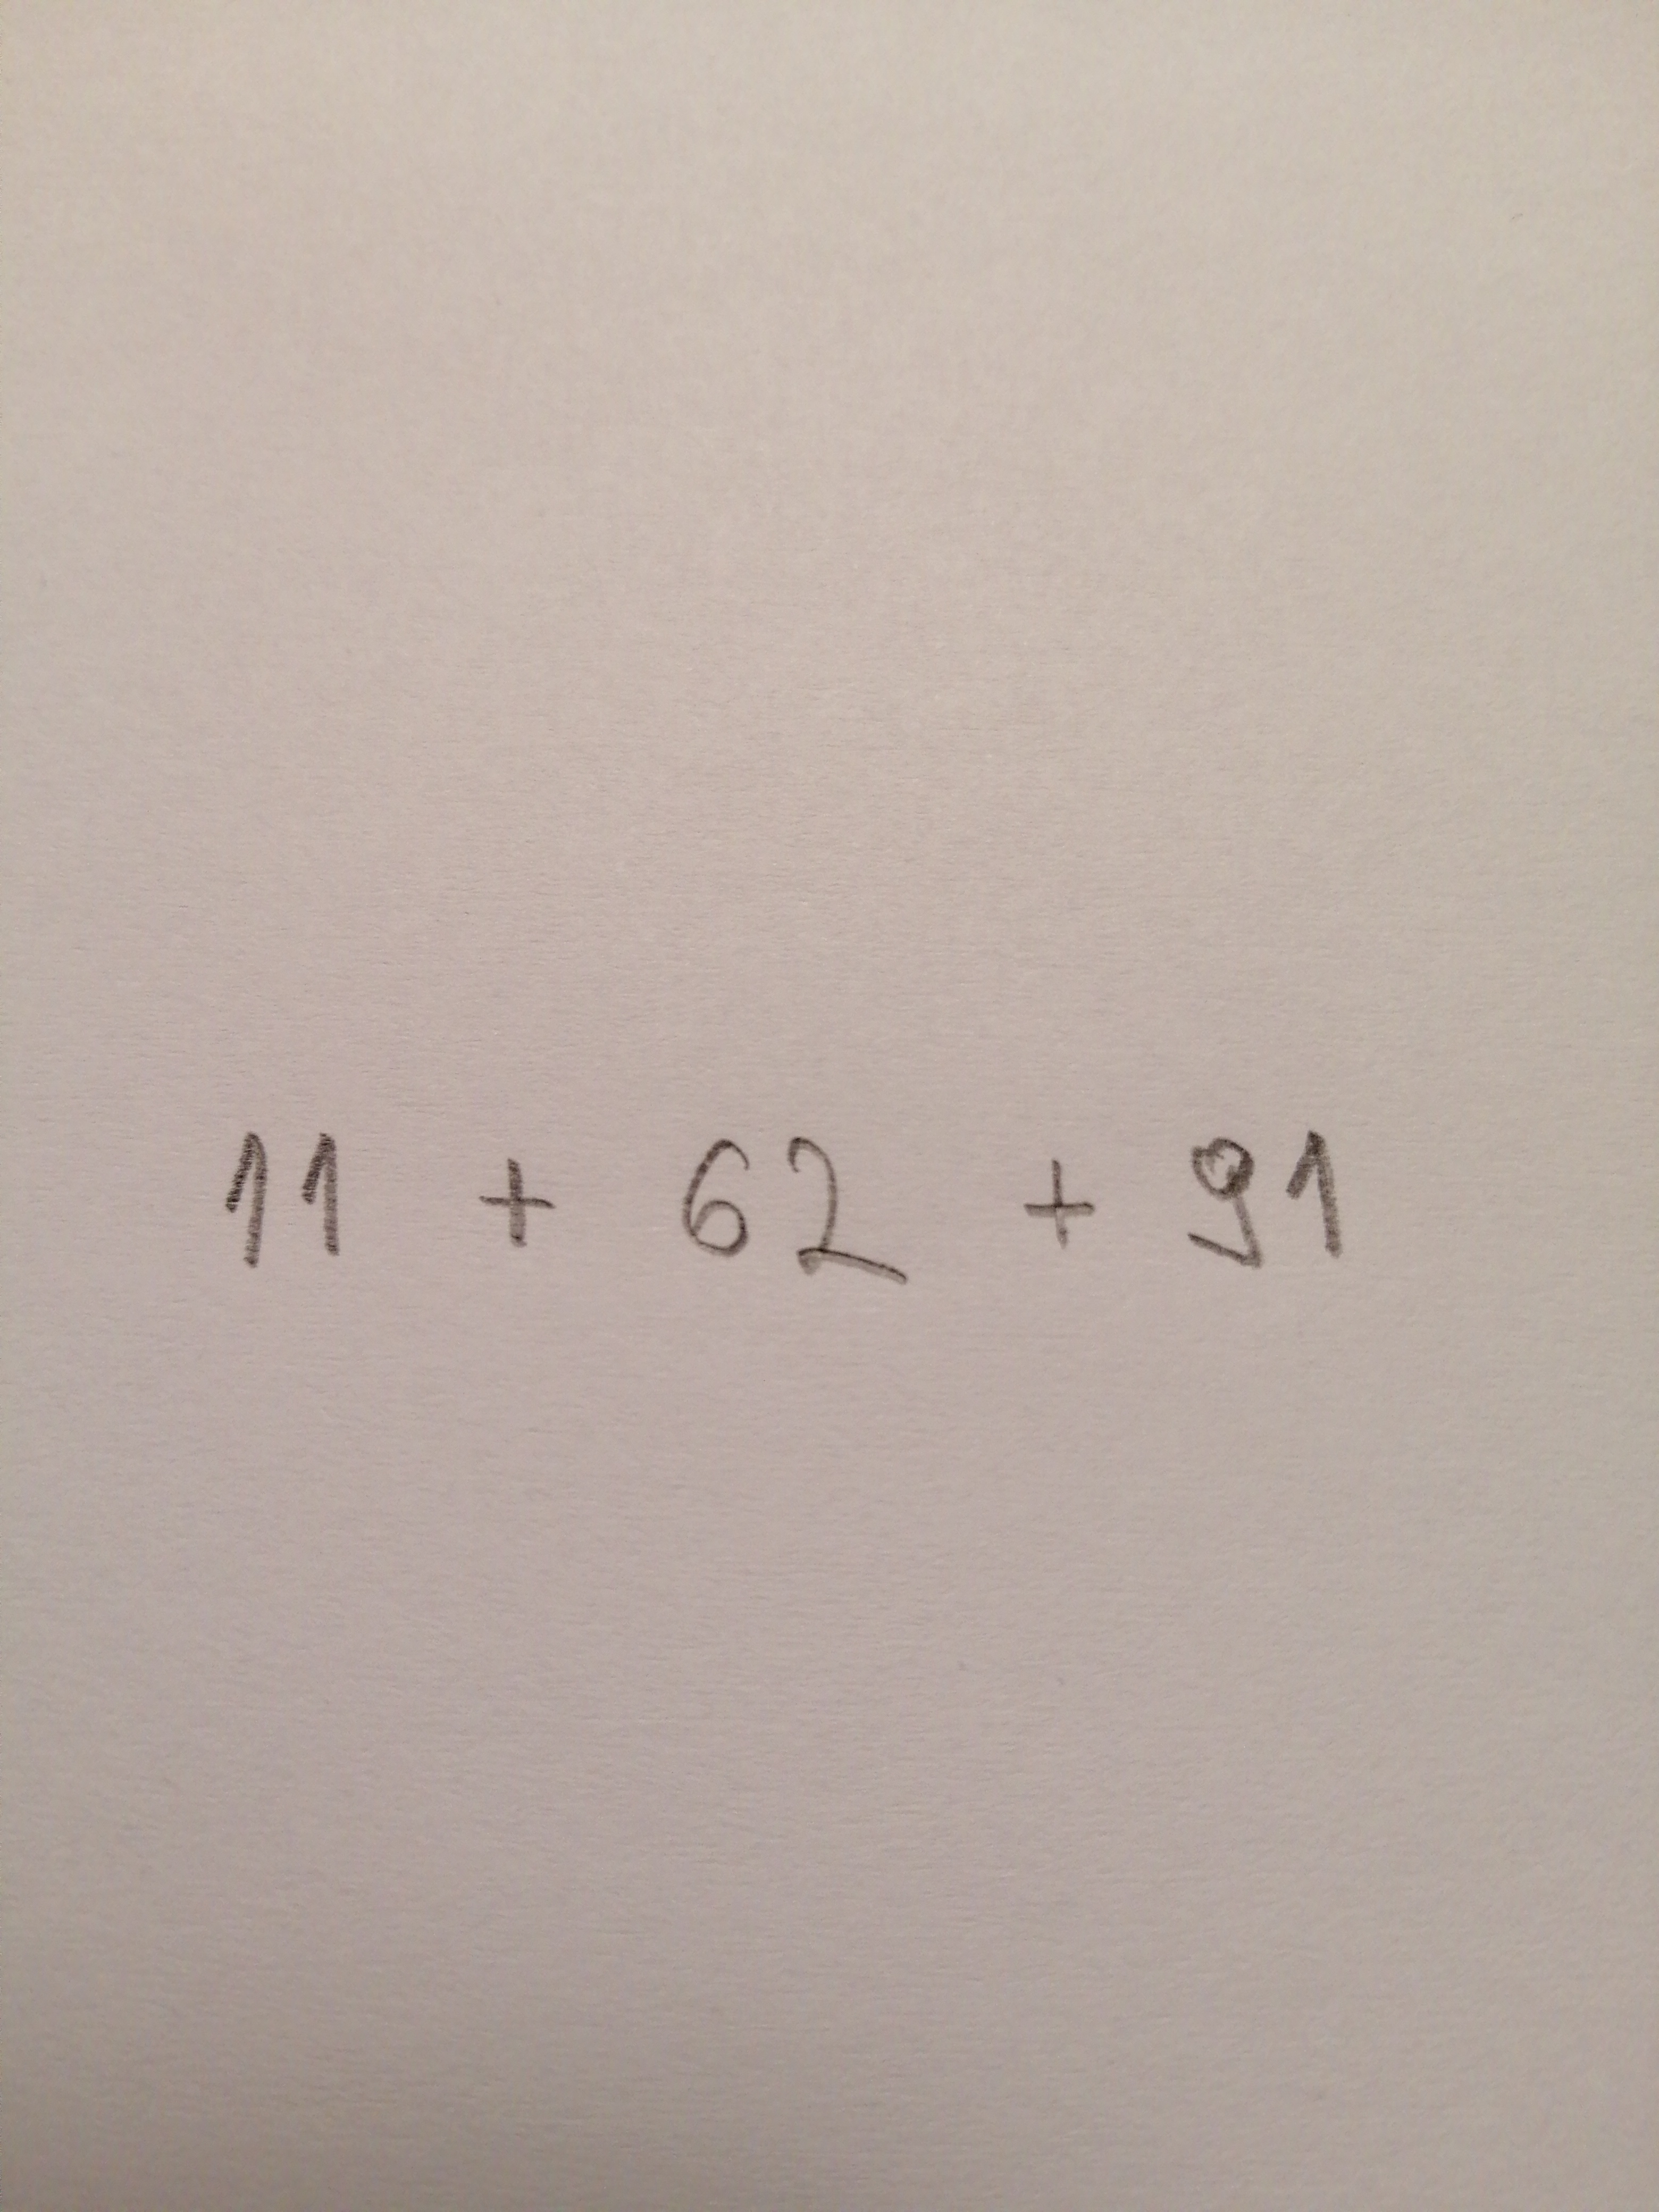 11 + 62 + 91